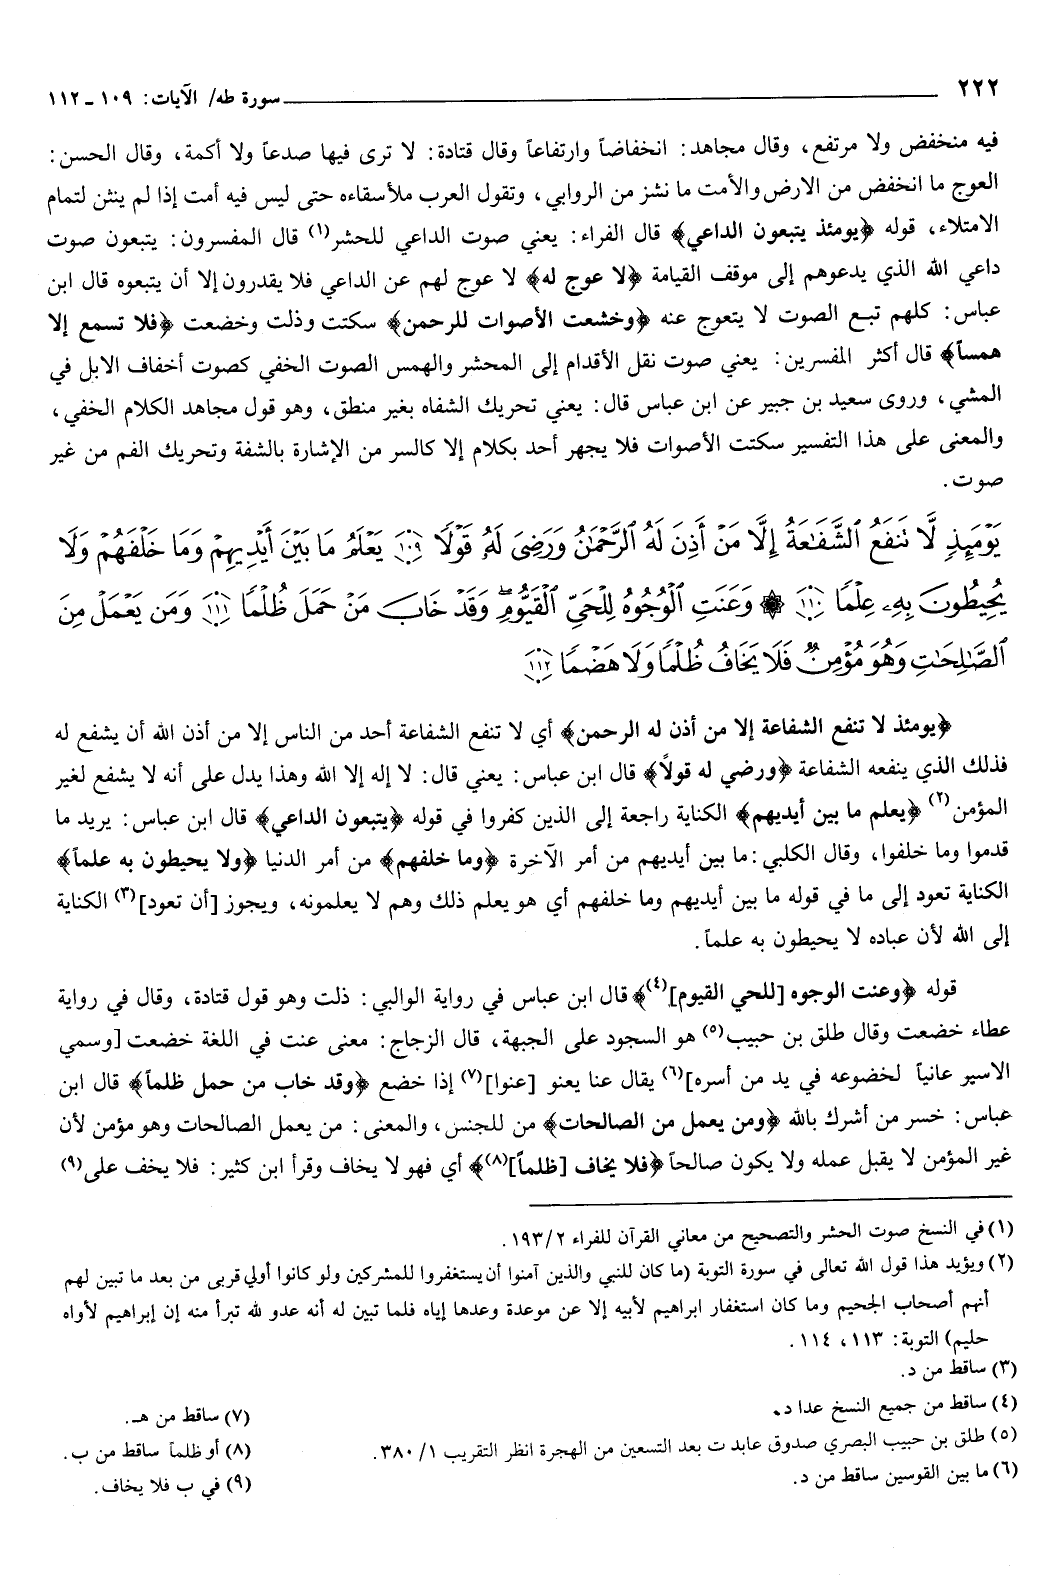 ٢٢٢ سورة طه/ الآيات: ١٠٩ ـ ١١٢
فيه منخفض ولا مرتفع، وقال مجاهد: انخفاضاً وارتفاعاً وقال قتادة: لا ترى فيها صدعاً ولا أكمة، وقال الحسن:
العوج ما انخفض من الارض والأمت ما نشز من الروابي، وتقول العرب ملأ سقاءه حتى ليس فيه أمت إذا لم ينثن لتمام
الامتلاء، قوله ﴿يومئذ يتبعون الداعي﴾ قال الفراء: يعني صوت الداعي للحشر(١) قال المفسرون: يتبعون صوت
داعي الله الذي يدعوهم إلى موقف القيامة ﴿لا عوج له﴾ لا عوج لهم عن الداعي فلا يقدرون إلا أن يتبعوه قال ابن
عباس: كلهم تبع الصوت لا يتعوج عنه ﴿وخشعت الأصوات للرحمن﴾ سكتت وذلت وخضعت ﴿فلا تسمع إلا
همساً﴾ قال أكثر المفسرين: يعني صوت نقل الأقدام إلى المحشر والهمس الصوت الخفي كصوت أخفاف الابل في
المشي، وروى سعيد بن جبير عن ابن عباس قال: يعني تحريك الشفاه بغير منطق، وهو قول مجاهد الكلام الخفي،
والمعنى على هذا التفسير سكتت الأصوات فلا يجهر أحد بكلام إلا كالسر من الإشارة بالشفة وتحريك الفم من غير
صوت.
يَوْمَئِذٍ لَّا تَنفَعُ ٱلشَّفَٰعَةُ إِلَّا مَنْ أَذِنَ لَهُ ٱلرَّحْمَٰنُ وَرَضِىَ لَهُۥ قَوْلًا ١٠٩ يَعْلَمُ مَا بَيْنَ أَيْدِيهِمْ وَمَا خَلْفَهُمْ وَلَا
يُحِيطُونَ بِهِۦ عِلْمًا ١١٠ ۞ وَعَنَتِ ٱلْوُجُوهُ لِلْحَىِّ ٱلْقَيُّومِۖ وَقَدْ خَابَ مَنْ حَمَلَ ظُلْمًا ١١١ وَمَن يَعْمَلْ مِنَ
ٱلصَّٰلِحَٰتِ وَهُوَ مُؤْمِنٌ فَلَا يَخَافُ ظُلْمًا وَلَا هَضْمًا ١١٢
﴿يومئذ لا تنفع الشفاعة إلا من أذن له الرحمن﴾ أي لا تنفع الشفاعة أحد من الناس إلا من أذن الله أن يشفع له
فذلك الذي ينفعه الشفاعة ﴿ورضي له قولاً﴾ قال ابن عباس: يعني قال: لا إله إلا الله وهذا يدل على أنه لا يشفع لغير
المؤمن(٢) ﴿يعلم ما بين أيديهم﴾ الكناية راجعة إلى الذين كفروا في قوله ﴿يتبعون الداعي﴾ قال ابن عباس: يريد ما
قدموا وما خلفوا، وقال الكلبي: ما بين أيديهم من أمر الآخرة ﴿وما خلفهم﴾ من أمر الدنيا ﴿ولا يحيطون به علماً﴾
الكناية تعود إلى ما في قوله ما بين أيديهم وما خلفهم أي هو يعلم ذلك وهم لا يعلمونه، ويجوز [أن تعود](٣) الكناية
إلى الله لأن عباده لا يحيطون به علماً.
قوله ﴿وعنت الوجوه [للحي القيوم](٤)﴾ قال ابن عباس في رواية الوالبي: ذلت وهو قول قتادة، وقال في رواية
عطاء خضعت وقال طلق بن حبيب(٥) هو السجود على الجبهة، قال الزجاج: معنى عنت في اللغة خضعت [وسمي
الاسير عانياً لخضوعه في يد من أسره](٦) يقال عنا يعنو [عنوا](٧) إذا خضع ﴿وقد خاب من حمل ظلماً﴾ قال ابن
عباس: خسر من أشرك بالله ﴿ومن يعمل من الصالحات﴾ من للجنس، والمعنى: من يعمل الصالحات وهو مؤمن لأن
غير المؤمن لا يقبل عمله ولا يكون صالحاً ﴿فلا يخاف [ظلماً](٨)﴾ أي فهو لا يخاف وقرأ ابن كثير: فلا يخف على(٩)
(١) في النسخ صوت الحشر والتصحيح من معاني القرآن للفراء ١٩٣/٢.
(٢) ويؤيد هذا قول الله تعالى في سورة التوبة (ما كان للنبي والذين آمنوا أن يستغفروا للمشركين ولو كانوا أولي قربى من بعد ما تبين لهم
أنهم أصحاب الجحيم وما كان استغفار ابراهيم لأبيه إلا عن موعدة وعدها إياه فلما تبين له أنه عدو لله تبرأ منه إن إبراهيم لأواه
حليم) التوبة: ١١٣، ١١٤.
(٣) ساقط من د.
(٤) ساقط من جميع النسخ عدا د.
(٥) طلق بن حبيب البصري صدوق عابد ت بعد التسعين من الهجرة انظر التقريب ٣٨٠/١.
(٦) ما بين القوسين ساقط من د.
(٧) ساقط من هـ.
(٨) أو ظلماً ساقط من ب.
(٩) في ب فلا يخاف.